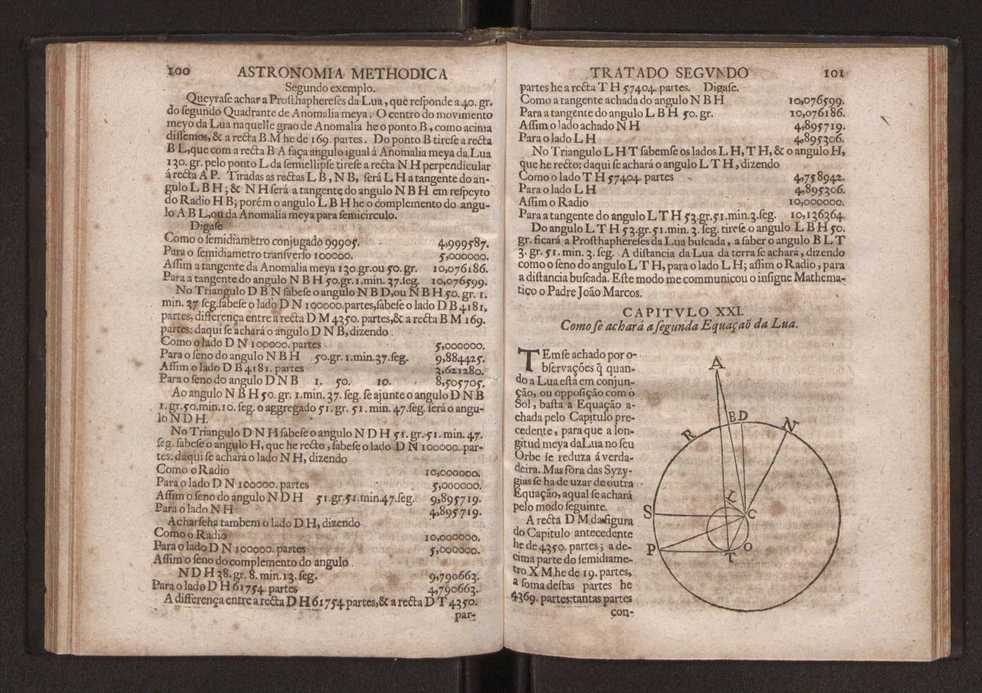 100 ASTRONOMIA METHODICA
Segundo exemplo.
Queyrase achar a Prosthaphereses da Lua, que responde a 40. gr.
do segundo Quadrante de Anomalia meya. O centro do movimento
meyo da Lua naquelle grao de Anomalia he o ponto B, como acima
dissemos, & a recta B M he de 169. partes. Do ponto B tirese a recta
B L, que com a recta B A faça angulo igual á Anomalia meya da Lua
130. gr. pelo ponto L da semellipse tirese a recta N H perpendicular
á recta A P. Tiradas as rectas L B, N B, será L H a tangente do an-
gulo L B H; & N H será a tangente do angulo N B H em respeyto
do Radio H B; porém o angulo L B H he o complemento do angu-
lo A B L, ou da Anomalia meya para semicirculo.
Digase
Como o semidiametro conjugado 99905. 4,999587.
Para o semidiametro transverso 100000. 5,000000.
Assim a tangente da Anomalia meya 130. gr. ou 50. gr. 10,076186.
Para a tangente do angulo N B H 50. gr. 1. min. 37. seg. 10,076599.
No Triangulo D B N sabese o angulo N B D, ou N B H 50. gr. 1.
min. 37 seg. sabese o lado D N 100000. partes, sabese o lado D B 4181,
partes, differença entre a recta D M 4350. partes, & a recta B M 169.
partes: daqui se achará o angulo D N B, dizendo
Como o lado D N 100000. partes 5,000000.
Para o seno do angulo N B H 50. gr. 1. min. 37. seg. 9,884425.
Assim o lado D B 4181. partes 3,621280.
Para o seno do angulo D N B 1. 50. 10. 8,505705.
Ao angulo N B H 50. gr. 1. min. 37. seg. se ajunte o angulo D N B
1. gr. 50. min. 10. seg. o aggregado 51. gr. 51. min. 47. seg. será o angu-
lo N D H.
No Triangulo D N H sabese o angulo N D H 51. gr. 51. min. 47.
seg. sabese o angulo H, que he recto, sabese o lado D N 100000. par-
tes: daqui se achará o lado N H, dizendo
Como o Radio 10,000000.
Para o lado D N 100000. partes 5,000000.
Assim o seno do angulo N D H 51. gr. 51. min. 47. seg. 9,895719.
Para o lado N H 4,895719.
Acharseha tambem o lado D H, dizendo
Como o Radio 10,000000.
Para o lado D N 100000. partes 5,000000.
Assim o seno do complemento do angulo
N D H 38. gr. 8. min. 13. seg. 9,790663.
Para o lado D H 61754 partes 4,790663.
A differença entre a recta D H 61754 partes, & a recta D T 4350.
par-
TRATADO SEGVNDO 101
partes he a recta T H 57404. partes. Digase.
Como a tangente achada do angulo N B H 10,076599.
Para a tangente do angulo L B H 50. gr. 10,076186.
Assim o lado achado N H 4,895719.
Para o lado L H 4,895306.
No Triangulo L H T sabemse os lados L H, T H, & o angulo H,
que he recto: daqui se achará o angulo L T H, dizendo
Como o lado T H 57404. partes 4,758942.
Para o lado L H 4,895306.
Assim o Radio 10,000000.
Para a tangente do angulo L T H 53. gr. 51. min. 3. seg. 10,136364.
Do angulo L T H 53. gr. 51. min. 3. seg. tirese o angulo L B H 50.
gr. ficará a Prosthaphereses da Lua buscada, a saber o angulo B L T
3. gr. 51. min. 3. seg. A distancia da Lua da terra se achará, dizendo
como o seno do angulo L T H, para o lado L H; assim o Radio, para
a distancia buscada. Este modo me communicou o insigne Mathema-
tiço o Padre João Marcos.
CAPITVLO XXI.
Como se achará a segunda Equaçaõ da Lua.
TEmse achado por o-
bservações q̃ quan-
do a Lua está em conjun-
ção, ou opposição com o
Sol, basta a Equação a-
chada pelo Capitulo pre-
cedente, para que a lon-
gitud meya da Lua no seu
Orbe se reduza á verda-
deira. Mas fóra das Syzy-
gias se ha de uzar de outra
Equação, a qual se achará
pelo modo seguinte.
A recta D M da figura
do Capitulo antecedente
he de 4350. partes; a de-
cima parte do semidiame-
tro X M he de 19. partes,
a soma destas partes he
4369. partes: tantas partes
con-
A
B D
R N
L
S C
P O
T